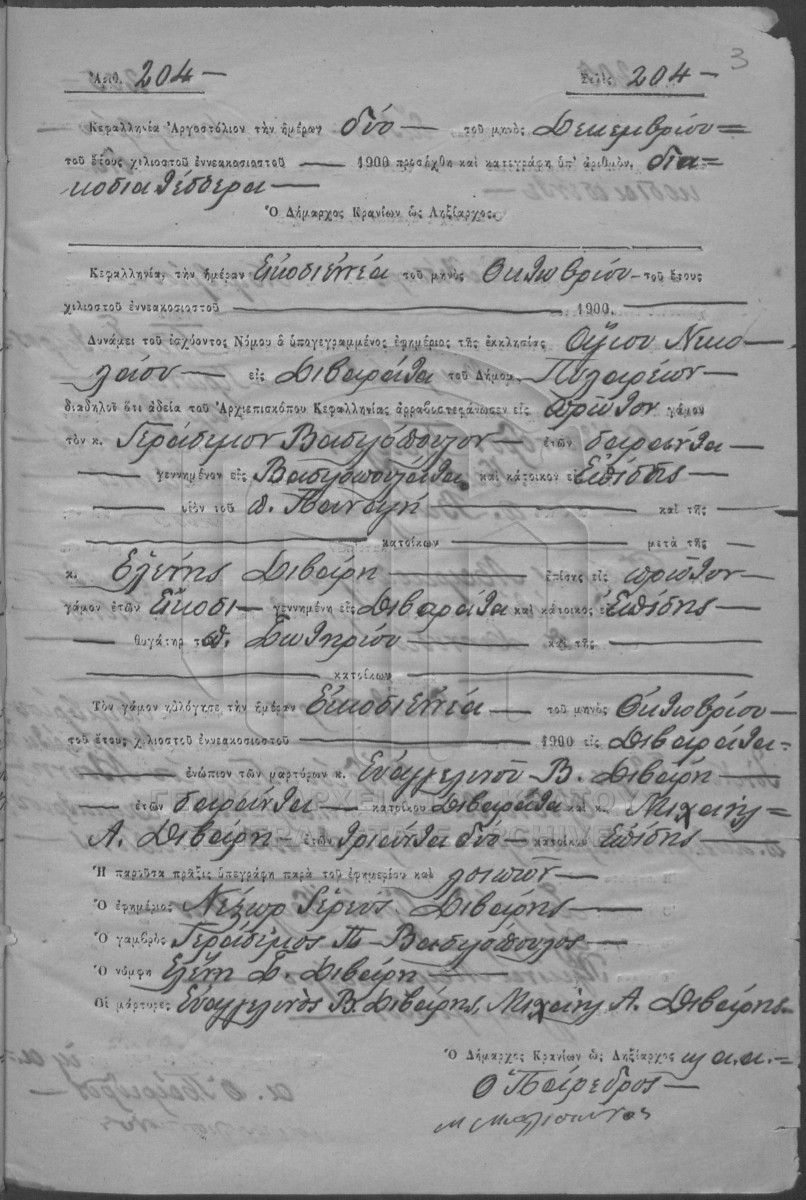 3
Ἀριθ. 204 — Σελὶς 204 —
Κεφαλληνία Ἀργοστόλιον τὴν ἡμέραν δύο — τοῦ μηνὸς Δεκεμβρίου
τοῦ ἔτους χιλιοστοῦ ἐννεακοσιοστοῦ — 1900 προσήχθη καὶ κατεγράφη ὑπ' ἀριθμὸν, δια-
κοσιατέσσερα —
Ὁ Δήμαρχος Κρανίων ὡς Ληξίαρχος.
Κεφαλληνία, τὴν ἡμέραν Εἰκοσιεννέα τοῦ μηνὸς Ὀκτωβρίου — τοῦ ἔτους
χιλιοστοῦ ἐννεακοσιοστοῦ — 1900.
Δυνάμει τοῦ ἰσχύοντος Νόμου ὁ ὑπογεγραμμένος ἐφημέριος τῆς ἐκκλησίας Ἁγίου Νικο-
λάου — εἰς Διβαράτα τοῦ Δήμου Πυλαρέων
διαδηλοῖ ὅτι ἀδεία τοῦ Ἀρχιεπισκόπου Κεφαλληνίας ἀρραβωστεφάνωσεν εἰς πρῶτον γάμον
τὸν κ. Γεράσιμον Βασιλόπουλον — ἐτῶν σαράντα —
— γεννημένον εἰς Βασιλοπουλάτα καὶ κάτοικον εἰς Ἐπίσης —
— υἱὸν τοῦ π. Παναγῆ — καὶ τῆς —
— κατοίκων — μετὰ τῆς —
κ. Ελένης Διβάρη — ἐπίσης εἰς πρῶτον —
γάμον ἐτῶν Εἴκοσι — γεννημένη εἰς Διβαράτα καὶ κάτοικος εἰς Ἐπίσης —
— θυγάτηρ τοῦ π. Σωτηρίου — καὶ τῆς —
— κατοίκων —
Τὸν γάμον ηὐλόγησε τὴν ἡμέραν Εἰκοσιεννέα — τοῦ μηνὸς Ὀκτωβρίου —
τοῦ ἔτους χιλιοστοῦ ἐννεακοσιοστοῦ — 1900 εἰς Διβαράτα —
— ἐνώπιον τῶν μαρτύρων κ. Εὐαγγελινοῦ Β. Διβάρη —
— ἐτῶν σαράντα — κατοίκου Διβαράτα καὶ κ. Μιχαὴλ —
Α. Διβάρη — ἐτῶν τριάντα δύο — κατοίκου Ἐπίσης —
Ἡ παροῦσα πρᾶξις ὑπεγράφη παρὰ τοῦ ἐφημερίου καὶ λοιπῶν —
Ὁ ἐφημέριος Ἱερεὺς Διβάρης —
Ὁ γαμβρὸς Γεράσιμος Π. Βασιλόπουλος —
Ὁ νύμφη Ελένη Σ. Διβάρη —
Οἱ μάρτυρες Εὐαγγελινὸς Β. Διβάρης, Μιχαὴλ Α. Διβάρης —
Ὁ Δήμαρχος Κρανίων ὡς Ληξίαρχος κ. α. α. —
Ὁ Πάρεδρος —